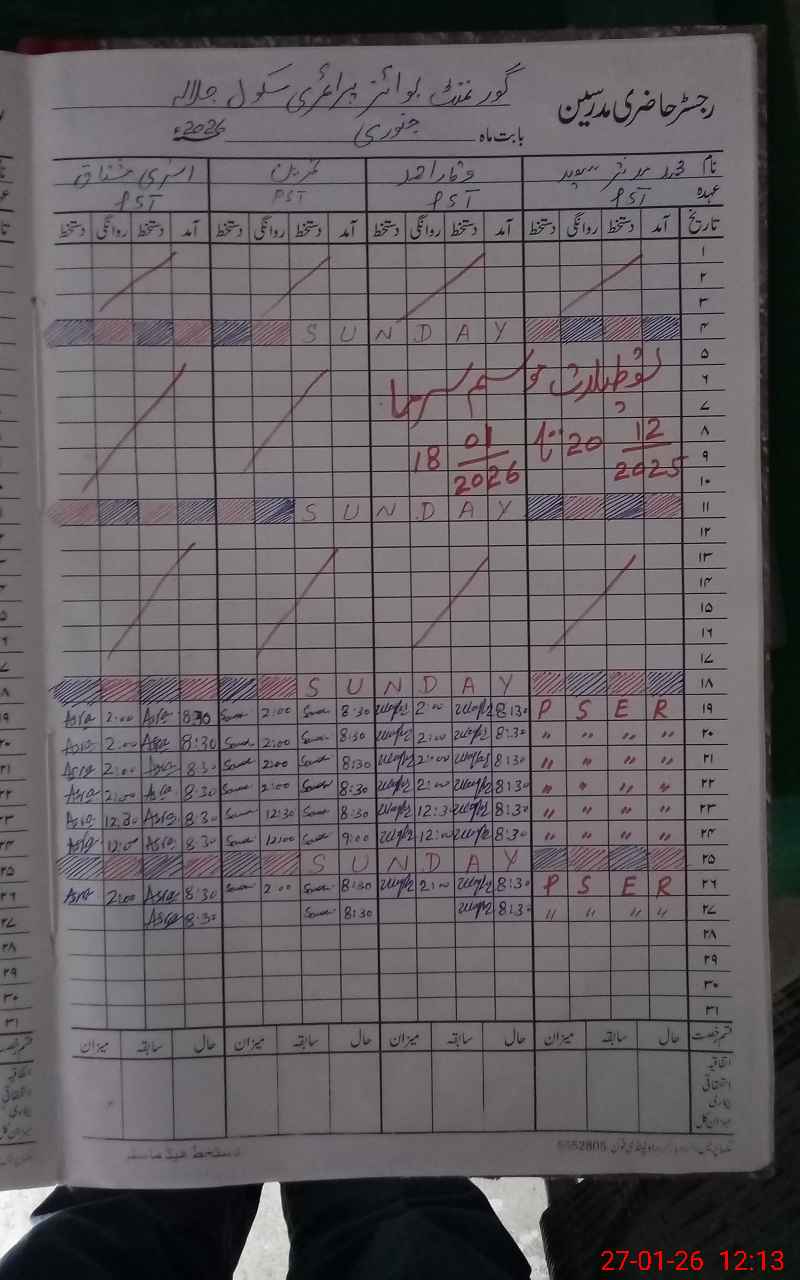 رجسٹر حاضری مدرسین
گورنمنٹ بوائز پرائمری سکول جلالہ
بابت ماہ جنوری 2026ء
نام وقار احمد ثمرین
عہدہ PST PST PST PST
تاریخ آمد دستخط روانگی دستخط آمد دستخط روانگی دستخط آمد دستخط روانگی دستخط آمد دستخط روانگی دستخط
۱
۲
۳
۴ SUNDAY
۵
۶ موسم سرما
۷
۸
20 12/2025 تا 18 01/2026
۹
۱۰
۱۱ SUNDAY
۱۲
۱۳
۱۴
۱۵
۱۶
۱۷
۱۸ SUNDAY
Asra 2:00 Asra 8:30 2:00 8:30 2:00 8:30 P S E R ۱۹
Asra 2:00 Asra 8:30 2:00 8:30 2:00 8:30 " " " " ۲۰
Asra 2:00 Asra 8:30 2:00 8:30 2:00 8:30 " " " " ۲۱
Asra 2:00 Asra 8:30 2:00 8:30 2:00 8:30 " " " " ۲۲
Asra 12:30 Asra 8:30 12:30 8:30 12:30 8:30 " " " " ۲۳
Asra 12:00 Asra 8:30 12:00 9:00 12:00 8:30 " " " " ۲۴
۲۵ SUNDAY
Asra 2:00 Asra 8:30 2:00 8:30 2:00 8:30 P S E R ۲۶
Asra 8:30 8:30 8:30 " " " " ۲۷
۲۸
۲۹
۳۰
۳۱
قسم رخصت حال سابقہ میزان حال سابقہ میزان حال سابقہ میزان حال سابقہ میزان
اتفاقیہ
استحقاقی
بیماری
میزان کل
دستخط ہیڈ ماسٹر
27-01-26 12:13